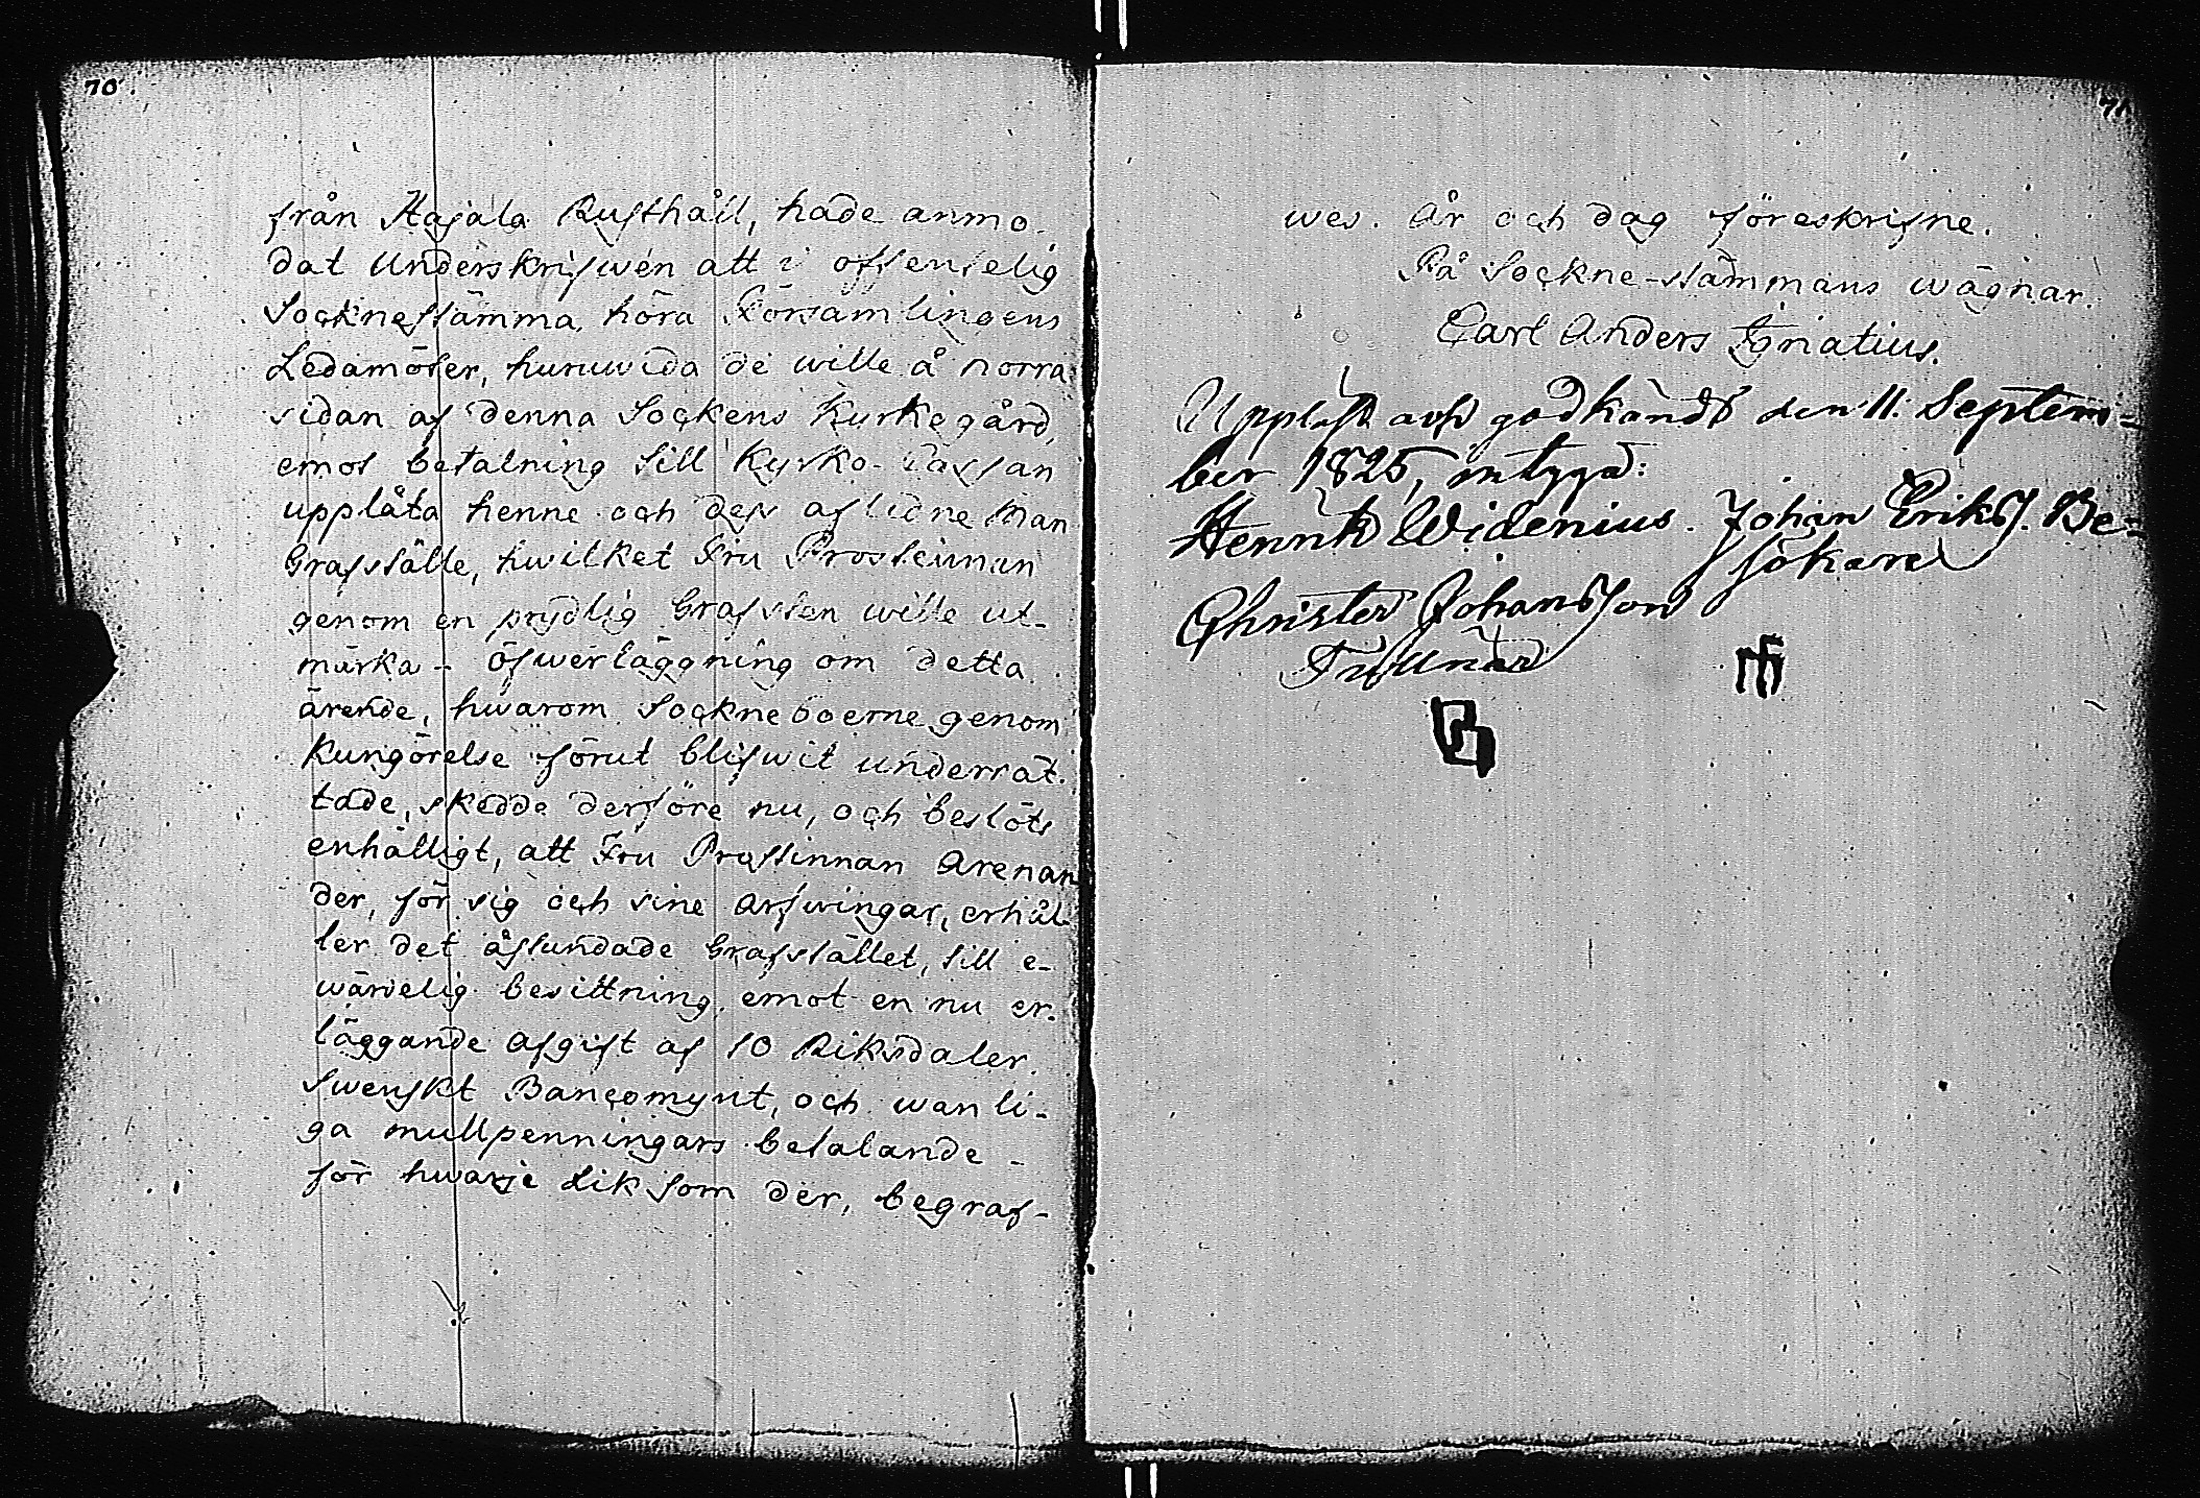 70.
från Hajala Rusthåll, hade anmo-
dat Underskrifwen att i offentelig
Sockneståmma, höra Församlingens
Ledamöter, huruwida de wille å norra
sidan af denna Sockens Kyrkogård,
emot betalning till Kyrko-Cassan
upplåta henne och dess aflidne Man
Grafställe, hwilket Fru Prostinnan
genom en prydlig Grafsten wille ut-
märka - Öfwerläggning om detta
ärende, hwarom Sockneboerne genom
Kungörelse förut blifwit underrät-
tade, skedde derföre nu, och beslöts
enhälligt, att Fru Prostinnan Arenan
der, för sig och sine arfwingar, erhål-
ler det åstundade Grafstället, till e-
wärdelig besittning, emot en nu er-
läggande Afgift af 10 Riksdaler
Swenskt Bancomynt, och wanli-
ga mullpenningars betalande -
för hwarje Lik som der, begraf-
71
wes. År och dag föreskrifne.
På Sockne-stämmans wägnar.
Carl Anders Ignatius.
Uppläst och godkändt den 11. Septem-
ber 1825, intyga:
Henrik Widenius. Johan Eriks. Be-
sökare
Christer Johansson